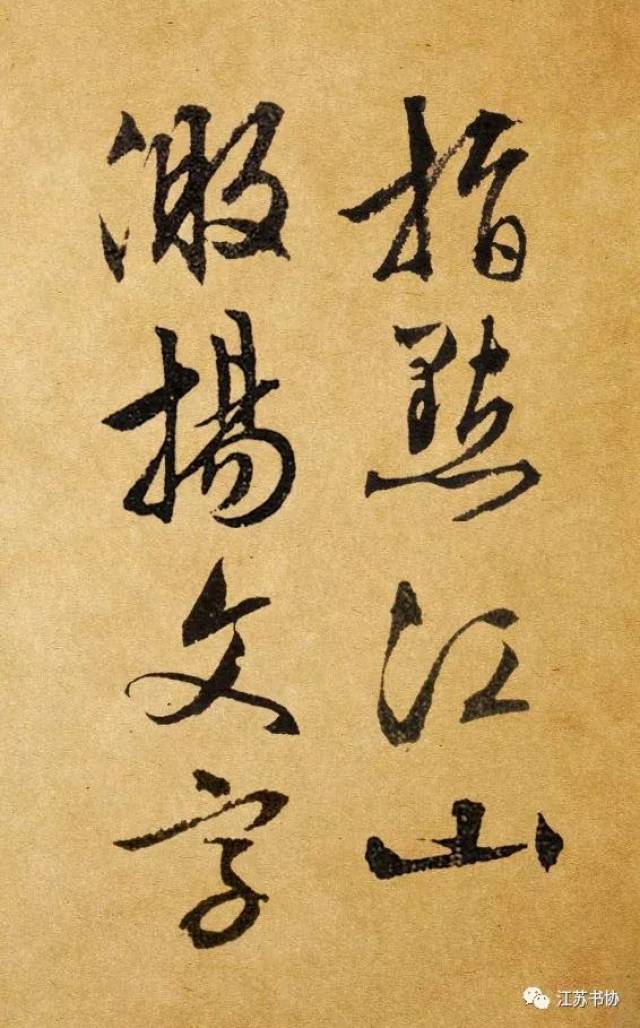 指點江山
激揚文字
江苏书协